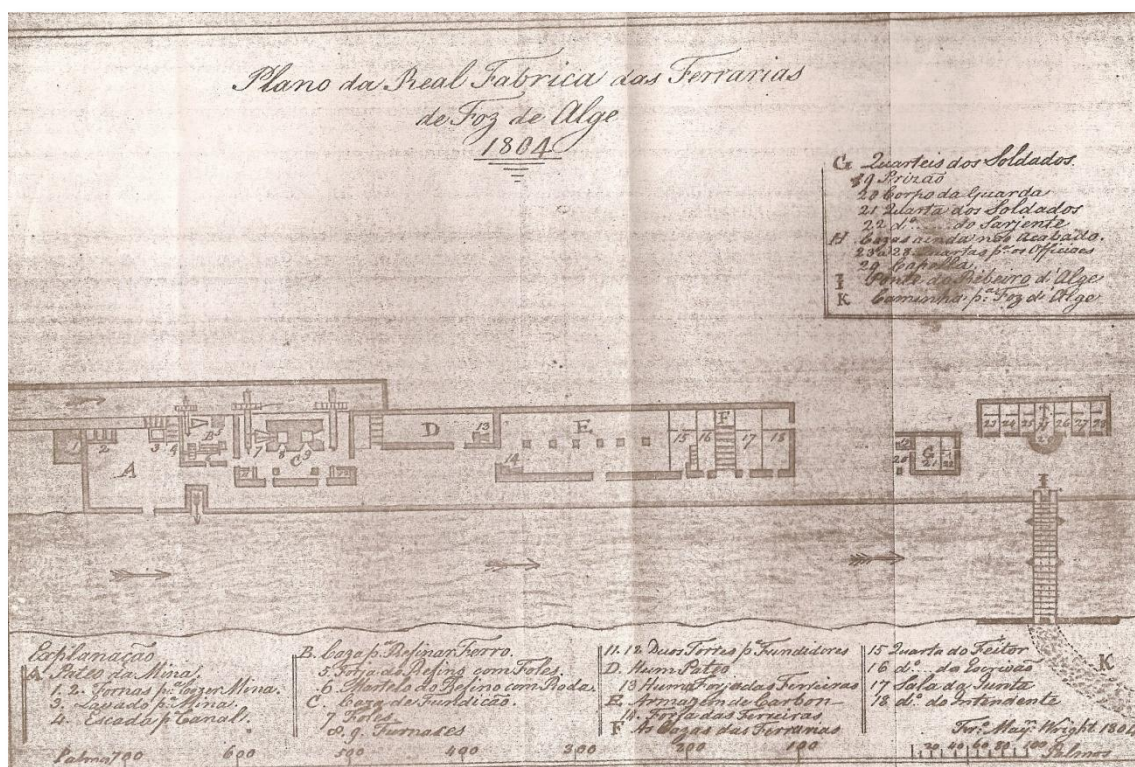 Plano da Real Fabrica das Ferrarias
de Foz de Alge
1804
G Quarteis dos Soldados.
19 Prizaõ
20 Corpo da Guarda
21 Quarta dos Soldados
22 dº... do Sarjente
H Cazas ainda não Acabado.
23 a 28 Quartas pª os Officiaes
29 Capella
I Ponte do Ribeiro d'Alge
K Caminha pª Foz d'Alge
1
2
3
4
A
B
5
7
8
9
C
D
13
E
14
15
16
F
17
18
20
G
21
22
23
24
25
26
27
28
29
I
K
Explanação
A. Pateo da Mina
1. 2. Fornas pª Cozer Mina.
3. Lavado pª Mina.
4. Escada pª Canal.
B. Caza pª Refinar Ferro.
5. Forja do Refino com Foles.
6. Martelo do Refino com Roda.
C. Caza de Fundicão.
7. Foles
8. 9. Furnases
11. 12 Duas Torres pª Fundidores
D. Hum Pateo
13 Huma Forja das Ferreiras
E. Armagem de Carbon
14. Forja das Ferreiras
F As Cazas das Ferrarias
15 Quarto do Feitor
16 dº... do Escrivão
17 Sala da Junta
18 dº. do Intendente
Wright 1804
Palmas 700 600 500 400 300 200 100
20 40 60 80 100 Palmos